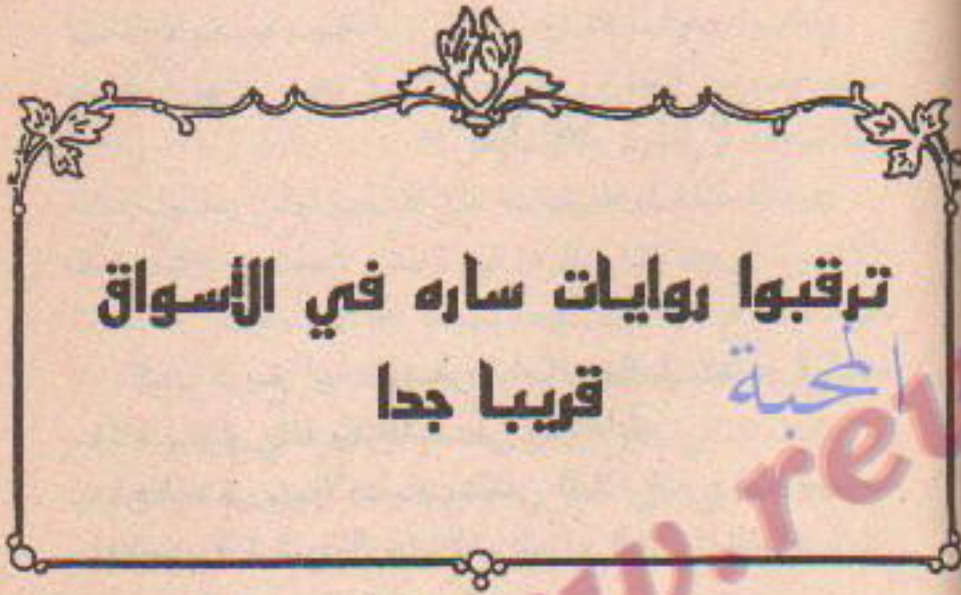 ترقبوا روايات ساره في الأسواق
قريبا جدا
المحبة